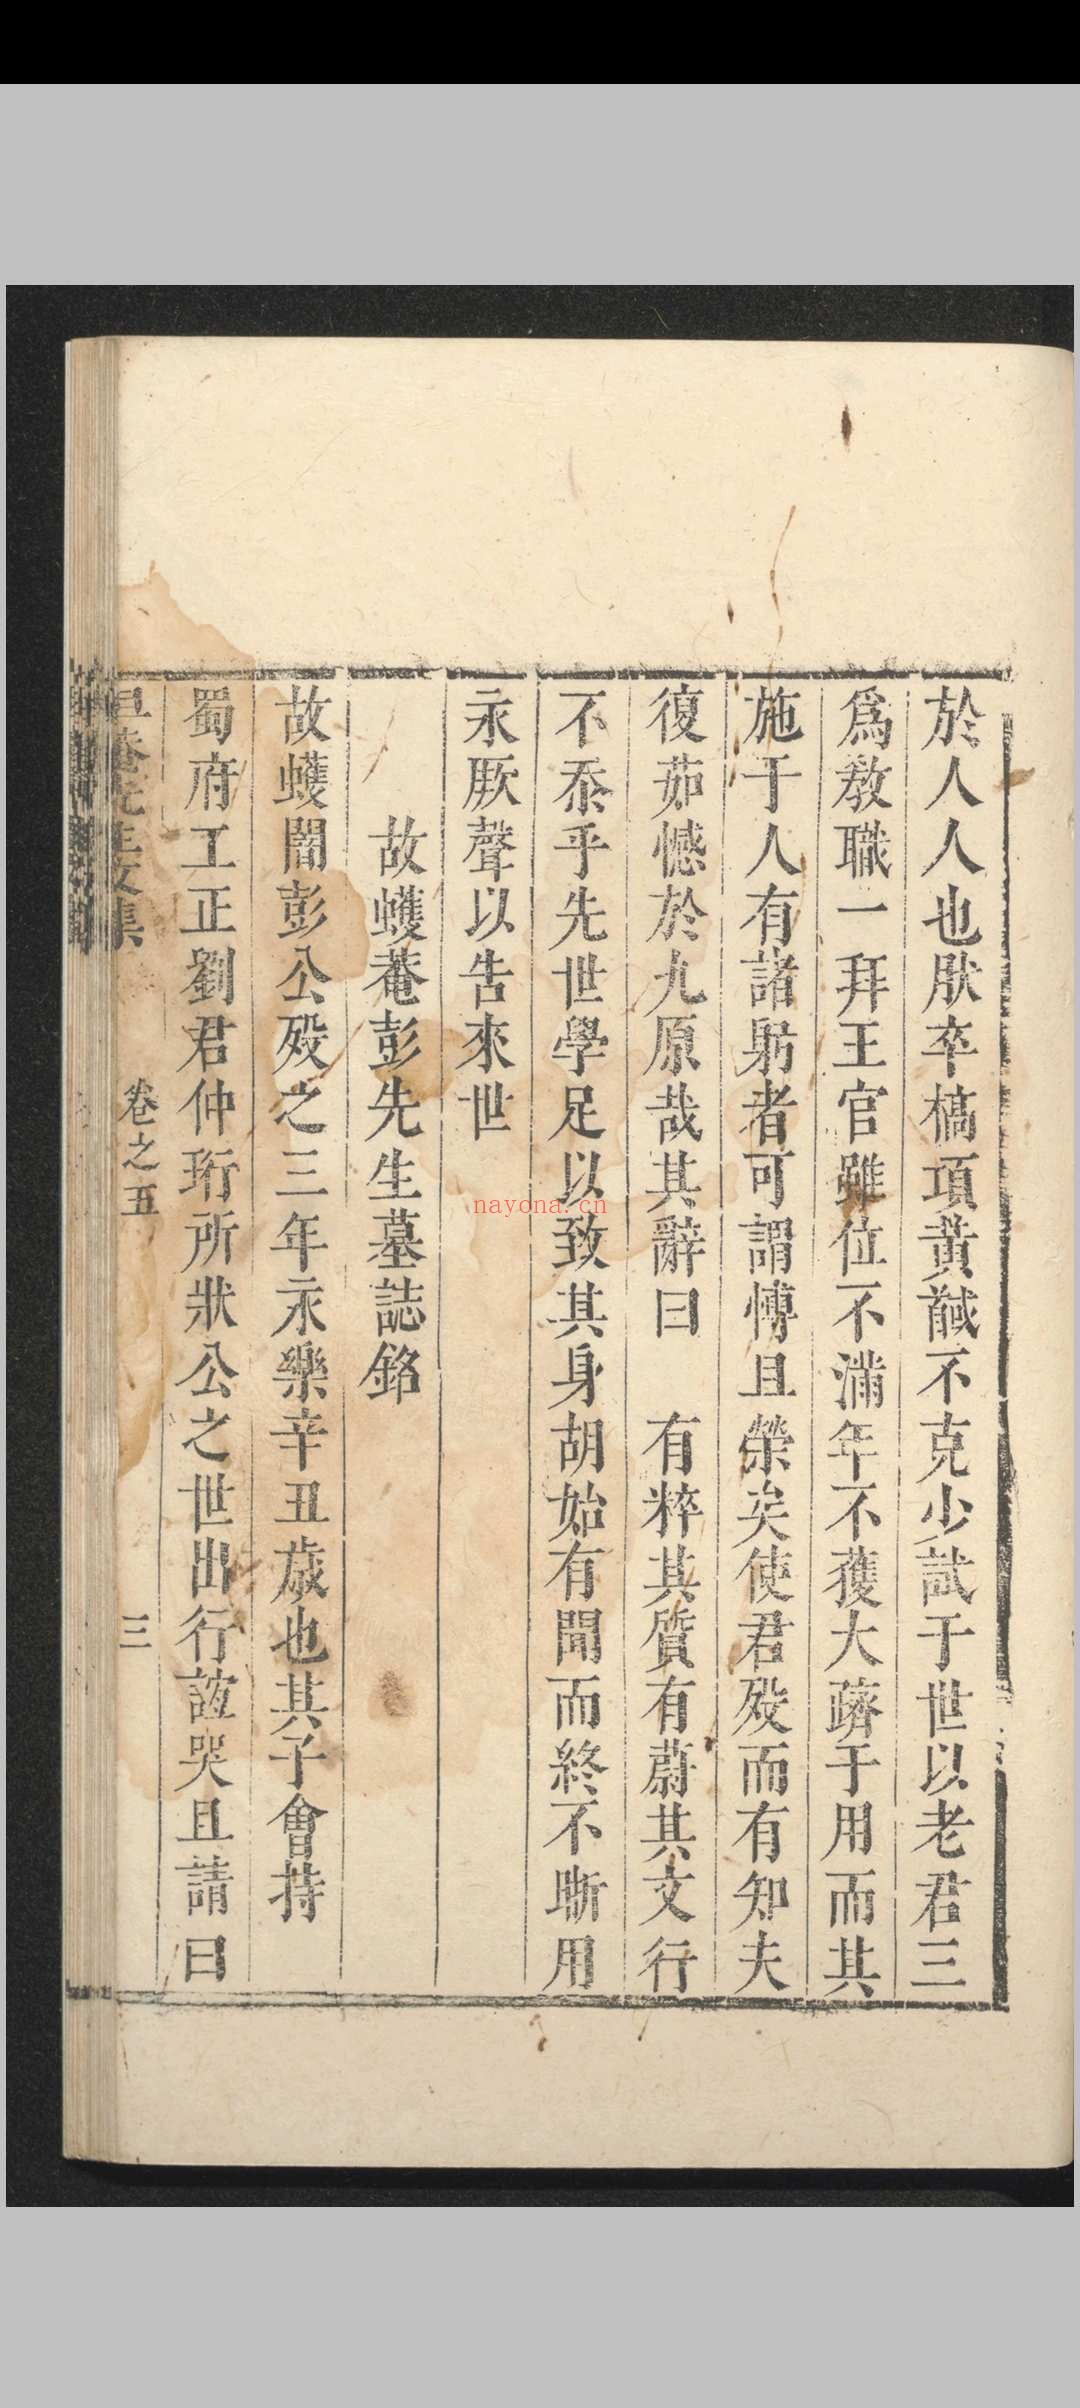 於人人也肰卒槁項黃馘不克少試于世以老君三
爲教職一拜王官雖位不滿年不獲大躋于用而其
施于人有諸躬者可謂愽且榮矣使君歿而有知夫
復茹憾於九原哉其辭曰　有粹其質有蔚其文行
不忝乎先世學足以致其身胡始有聞而終不晣用
永厥聲以告來世
故蠖菴彭先生墓誌銘
故蠖闇彭公歿之三年永樂辛丑歲也其子會持
蜀府工正劉君仲珩所狀公之世出行誼哭且請曰
菴先生文集
卷之五
三
nayona.cn